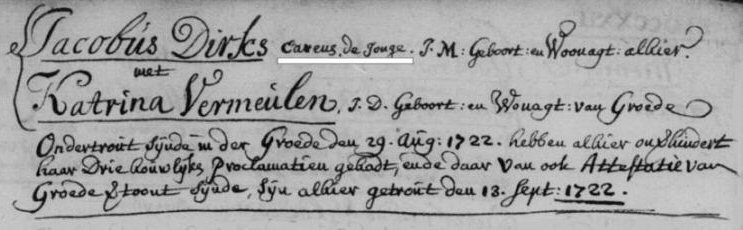 Jacobus Dirks Careus, de Jonge. J. M: Geboort: en Woonagt: alhier.
met
Katrina Vermeulen, J. D. Geboort: en Wonagt: van Groede
Ondertrout sijnde in der Groede den 29. Aug: 1722. hebben alhier onverhindert
haar Drie houwlijks Proclamatien gehadt, ende daar van ook Attestatie van
Groede vertoont sijnde, sijn alhier getrout den 13. Sept: 1722.